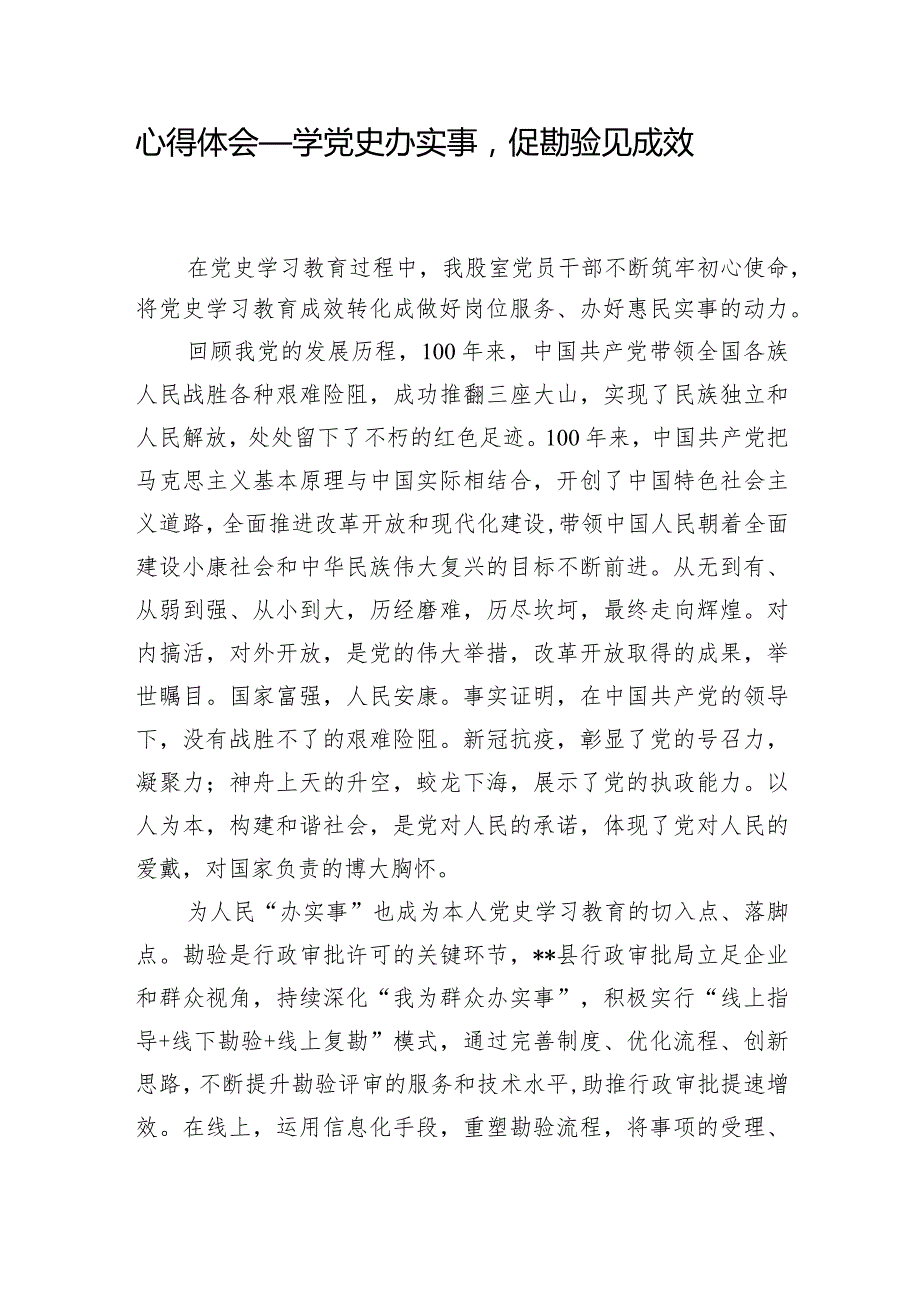 心得体会—学党史办实事，促勘验见成效
在党史学习教育过程中，我股室党员干部不断筑牢初心使命，
将党史学习教育成效转化成做好岗位服务、办好惠民实事的动力。
回顾我党的发展历程，100年来，中国共产党带领全国各族
人民战胜各种艰难险阻，成功推翻三座大山，实现了民族独立和
人民解放，处处留下了不朽的红色足迹。100年来，中国共产党把
马克思主义基本原理与中国实际相结合，开创了中国特色社会主
义道路，全面推进改革开放和现代化建设,带领中国人民朝着全面
建设小康社会和中华民族伟大复兴的目标不断前进。从无到有、
从弱到强、从小到大，历经磨难，历尽坎坷，最终走向辉煌。对
内搞活，对外开放，是党的伟大举措，改革开放取得的成果，举
世瞩目。国家富强，人民安康。事实证明，在中国共产党的领导
下，没有战胜不了的艰难险阻。新冠抗疫，彰显了党的号召力，
凝聚力；神舟上天的升空，蛟龙下海，展示了党的执政能力。以
人为本，构建和谐社会，是党对人民的承诺，体现了党对人民的
爱戴，对国家负责的博大胸怀。
为人民“办实事”也成为本人党史学习教育的切入点、落脚
点。勘验是行政审批许可的关键环节，**县行政审批局立足企业
和群众视角，持续深化“我为群众办实事”，积极实行“线上指
导+线下勘验+线上复勘”模式，通过完善制度、优化流程、创新
思路，不断提升勘验评审的服务和技术水平,助推行政审批提速增
效。在线上，运用信息化手段，重塑勘验流程，将事项的受理、